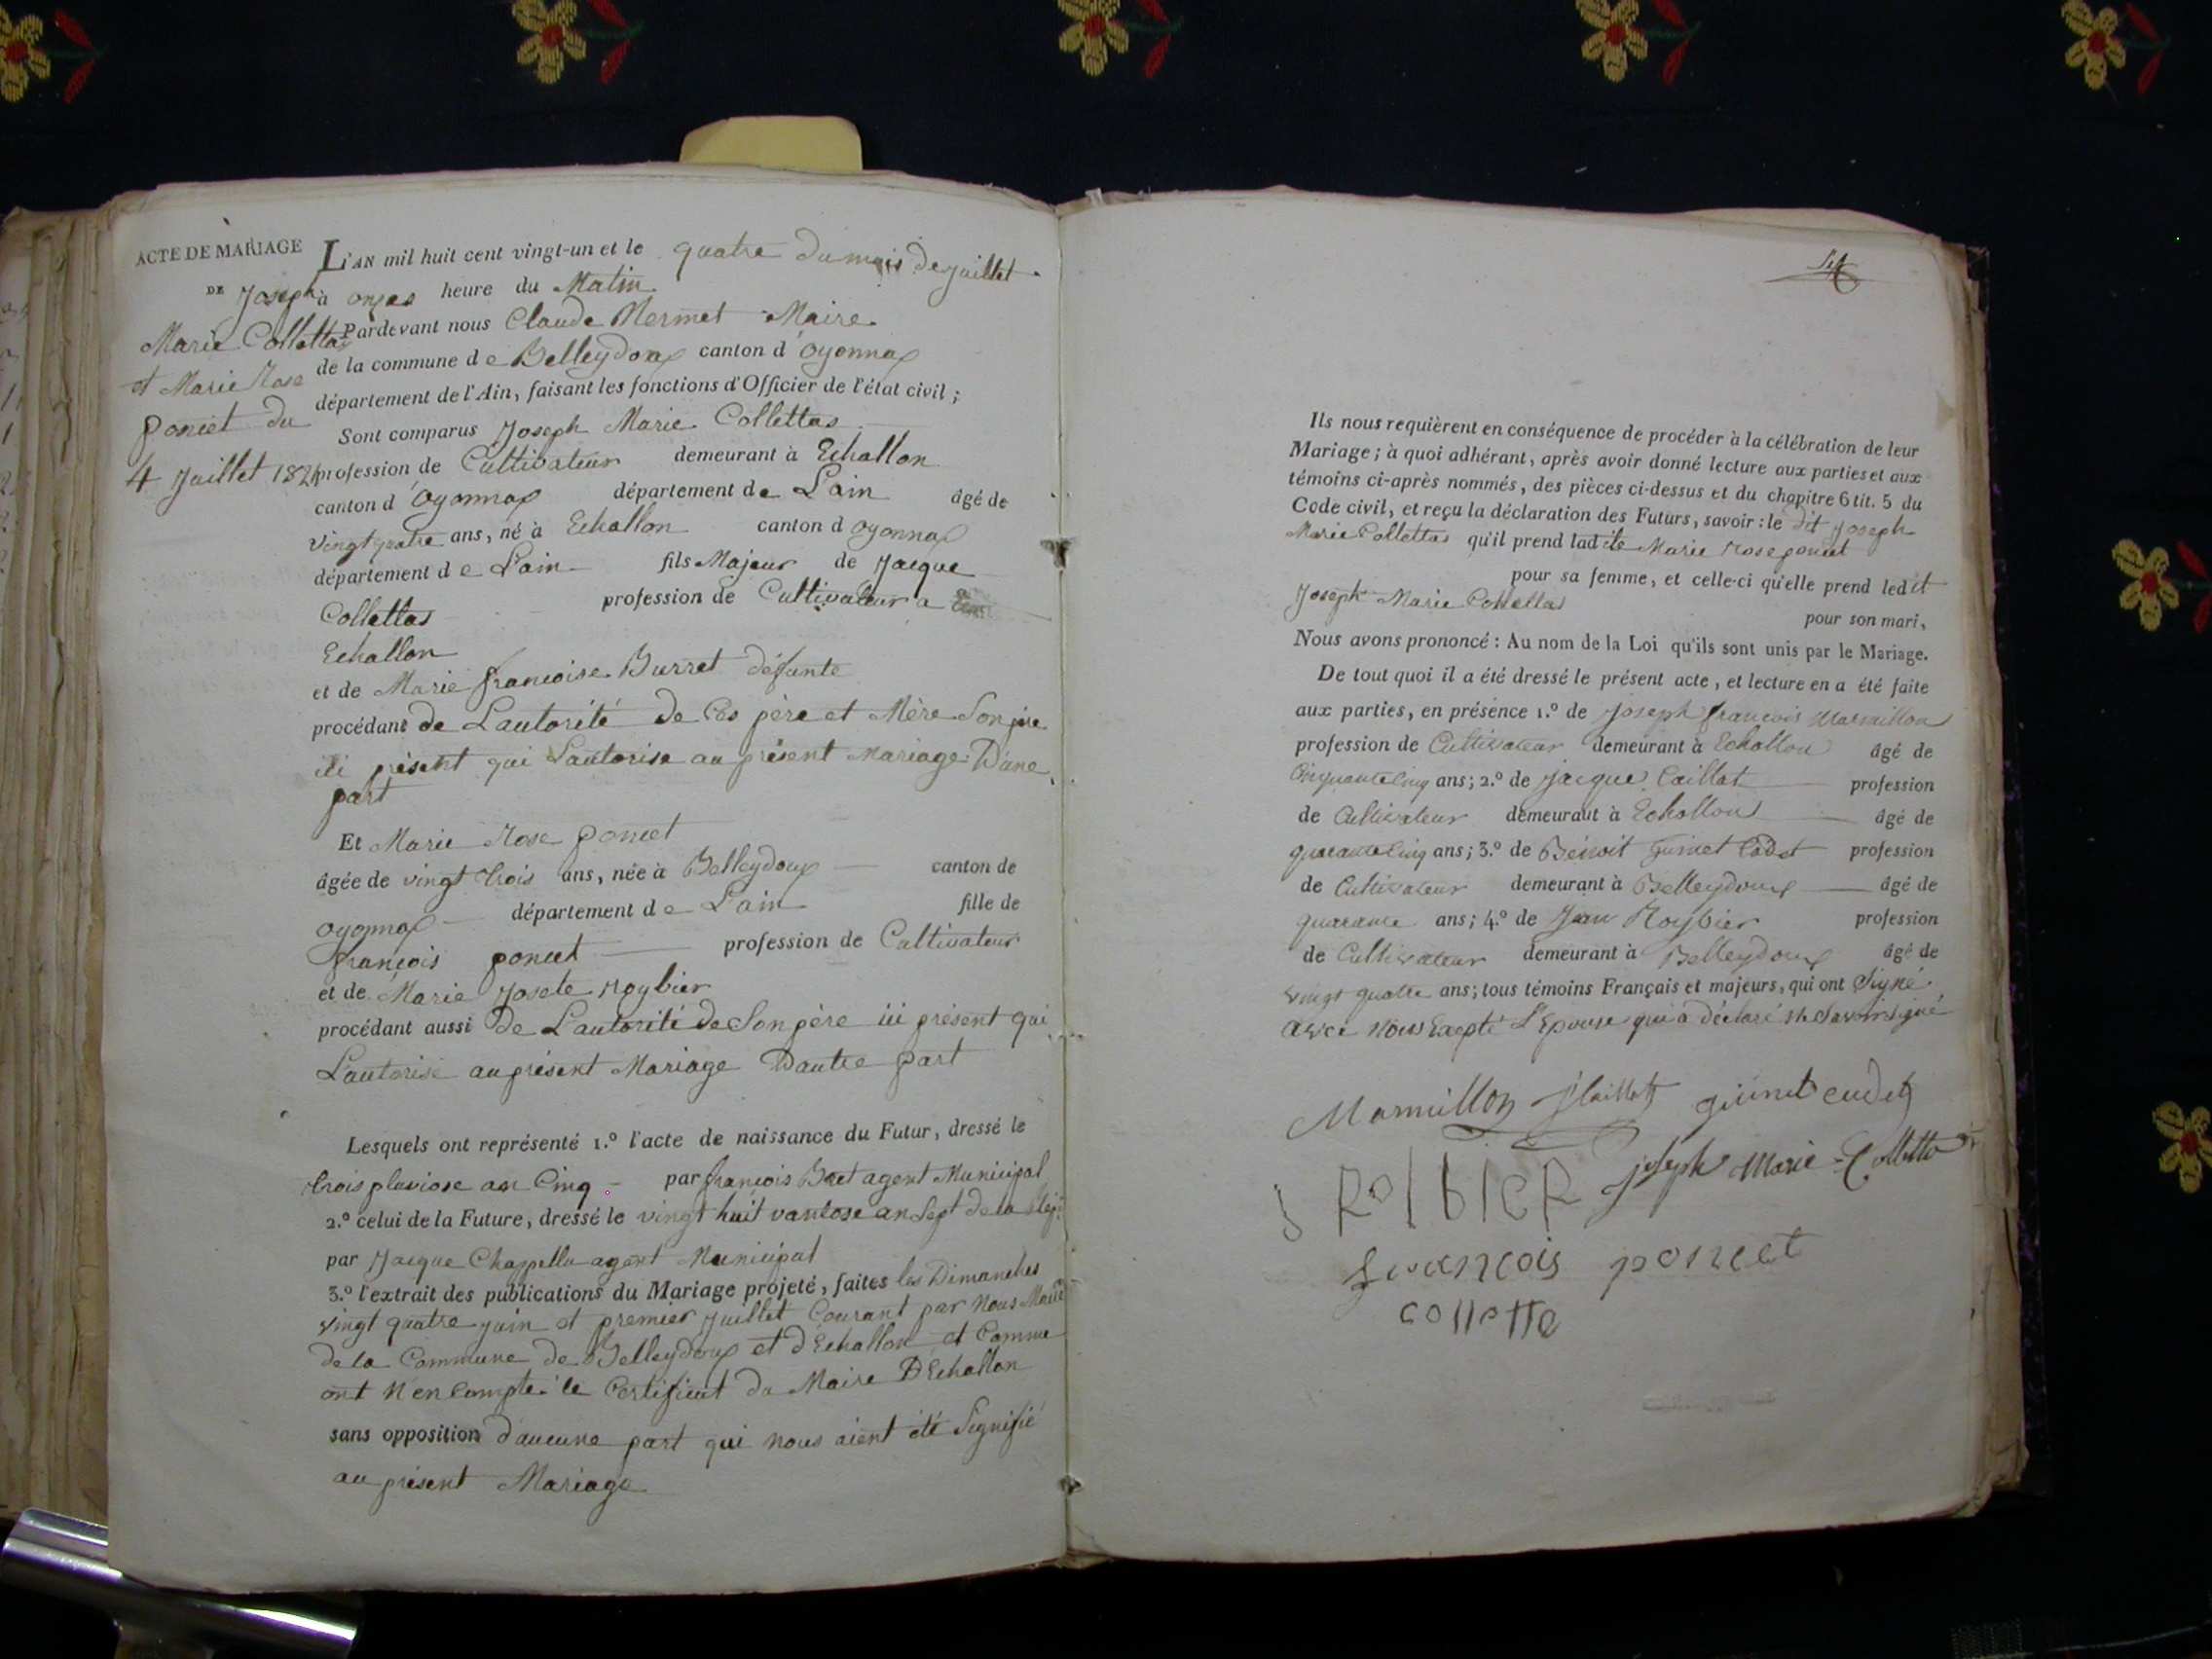 ACTE DE MARIAGE
DE Joseph
Marie Collettas
et Marie Rose
poncet du
4 Juillet 1821
L'AN mil huit cent vingt-un et le quatre du mois de juillet
à onzes heure du Matin
Pardevant nous Claude Mermet Maire
de la commune de Belleydoux canton d'Oyonnax
département de l'Ain, faisant les fonctions d'Officier de l'état civil ;
Sont comparus Joseph Marie Collettas
profession de Cultivateur demeurant à Echallon
canton d'Oyonnax département de L'ain âgé de
vingt quatre ans, né à Echallon canton d oyonnax
département de L'ain fils Majeur de Jacque
Collettas profession de Cultivateur a
Echallon
et de Marie françoise Burret défunte
procédant de L'autorité de Ces père et Mère Son père
ici présent qui L'autorise au présent Mariage D'une
part
Et Marie Rose poncet
âgée de vingt trois ans, née à Belleydoux canton de
oyonnax département de L'ain fille de
françois poncet profession de Cultivateur
et de Marie Josete Roybier
procédant aussi de L'autorité de Son père ici présent qui
L'autorise au présent Mariage D'autre part
Lesquels ont représenté 1.º l'acte de naissance du Futur, dressé le
trois pluviose an Cinq par françois agent Municipal
2.º celui de la Future, dressé le vingt huit vantose an Sept de la
par Jacque Chappellu agent Municipal
3.º l'extrait des publications du Mariage projeté, faites les Dimanches
vingt quatre juin et premier juillet Courant par Nous Maire
de la Commune de Belleydoux et d'Echallon et Comme
ont N'en Compte le Certificat du Maire D'Echallon
sans opposition d'aucune part qui nous aient été Signifié
au présent Mariage
Ils nous requièrent en conséquence de procéder à la célébration de leur
Mariage ; à quoi adhérant, après avoir donné lecture aux parties et aux
témoins ci-après nommés, des pièces ci-dessus et du chapitre 6 tit. 5 du
Code civil, et reçu la déclaration des Futurs, savoir : le dit Joseph
Marie Collettas qu'il prend ladite Marie Rose poncet
pour sa femme, et celle-ci qu'elle prend ledit
Joseph Marie Collettas
pour son mari,
Nous avons prononcé : Au nom de la Loi qu'ils sont unis par le Mariage.
De tout quoi il a été dressé le présent acte, et lecture en a été faite
aux parties, en présence 1.º de Joseph françois Marmillon
profession de Cultivateur demeurant à Echallon âgé de
Cinquante Cinq ans ; 2.º de Jacque Caillat profession
de Cultivateur demeurant à Echallon âgé de
quarante Cinq ans ; 3.º de Benoit Guinet Cadet profession
de Cultivateur demeurant à Belleydoux âgé de
quarante ans ; 4.º de Jean Roybier profession
de Cultivateur demeurant à Belleydoux âgé de
vingt quatre ans ; tous témoins Français et majeurs, qui ont Signé
avec Nous Excepté L'Epouse qui a déclaré ne Savoir signé
Marmillon J Caillat guinet cudet
J RoIbIER joseph Marie Colletta
francois poncet
collette